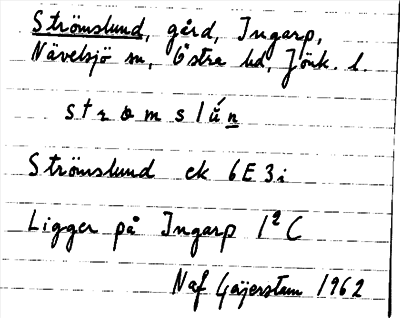 Strömslund, gård, Ingarp,
Nävelsjö sn, Östra hd, Jönk. l.
s t r ö m s l ú n
Strömslund ek 6E3i
Ligger på Ingarp 1² C
Naf Gaijerstam 1962